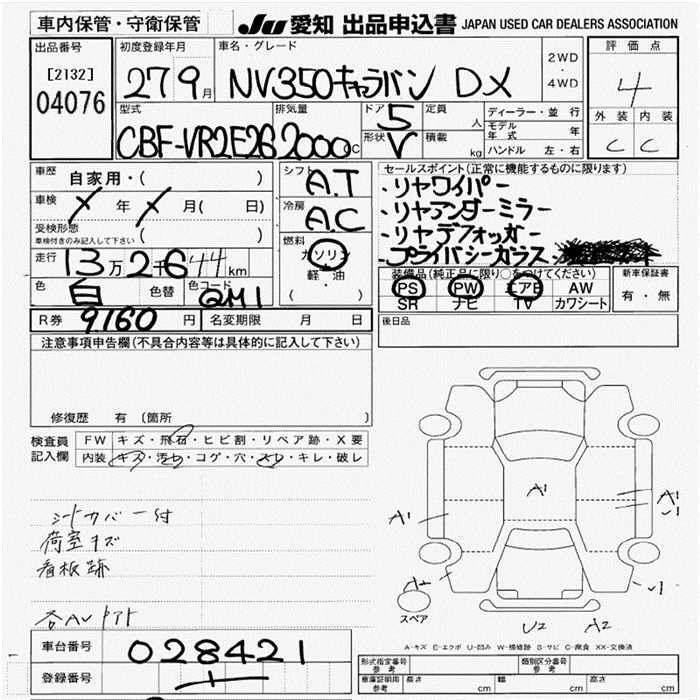 車内保管・守衛保管
JU 愛知 出品申込書 JAPAN USED CAR DEALERS ASSOCIATION
出品番号
[2132]
04076
初度登録年月
27 9月
車名・グレード
NV350キャラバン DX
2WD
・
4WD
評価点
4
外装 内装
C C
型式
CBF-VR2E26
排気量
2000CC
ドア 5
形状 V
定員 人
積載 kg
ディーラー・並行
モデル年式 年
ハンドル 左・右
車歴 自家用・( )
車検 年 月( 日)
受検形態
車検付きのみ記入して下さい ( )
走行 13万2千644km
色 白 色替 色コード QM1
シフト A.T
冷房 A.C
燃料
ガソリン
軽・油
( )
セールスポイント(正常に機能するものに限ります)
・リヤワイパー
・リヤアンダーミラー
・リヤデフォッガー
・プライバシーガラス
装備品(純正品に限り○をつけてください)
PS PW エアB AW
SR ナビ TV カワシート
新車保証書
有・無
R券 9,160円 名変期限 月 日
後日品
注意事項申告欄(不具合内容等は具体的に記入して下さい)
修復歴 有 (箇所 )
検査員記入欄
FW キズ・飛石・ヒビ割・リペア跡・X要
内装 キズ・汚れ・コゲ・穴・スレ・キレ・破レ
シートカバー付
荷室キズ
看板跡
A1
A1
A1
U1
A2
U1
U2 A2
スペア
A-キズ E-エクボ U-凹み W-補修跡 S-サビ C-腐食 XX-交換済
車台番号 028421
登録番号
形式指定番号 参考
類別区分番号 参考
車庫証明用 参考 長さ cm 幅 cm 高さ cm